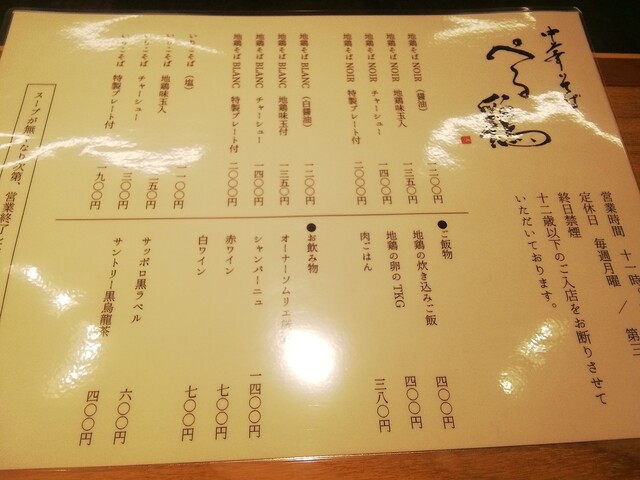 中華そば
べる 鶏
営業時間 十一時
定休日 毎週月曜 / 第三
終日禁煙
十二歳以下のご入店をお断りさせて
いただいております。
地鶏そば NOIR (醤油) 一二〇〇円
地鶏そば NOIR 地鶏味玉入 一三五〇円
地鶏そば NOIR チャーシュー 一四〇〇円
地鶏そば NOIR 特製プレート付 二〇〇〇円
地鶏そば BLANC (白醤油) 一二〇〇円
地鶏そば BLANC 地鶏味玉付 一三五〇円
地鶏そば BLANC チャーシュー 一四〇〇円
地鶏そば BLANC 特製プレート付 二〇〇〇円
いりこそば (塩) 一〇〇円
いりこそば 地鶏味玉入 二五〇円
いりこそば チャーシュー 三〇〇円
いりこそば 特製プレート付 一九〇〇円
スープが無くなり次第、営業終了
●ご飯物
地鶏の炊き込みご飯 四〇〇円
地鶏の卵のTKG 四〇〇円
肉ごはん 三八〇円
●お飲み物
オーナーソムリエ
シャンパーニュ 一四〇〇円
赤ワイン 七〇〇円
白ワイン 七〇〇円
サッポロ黒ラベル 六〇〇円
サントリー黒烏龍茶 四〇〇円